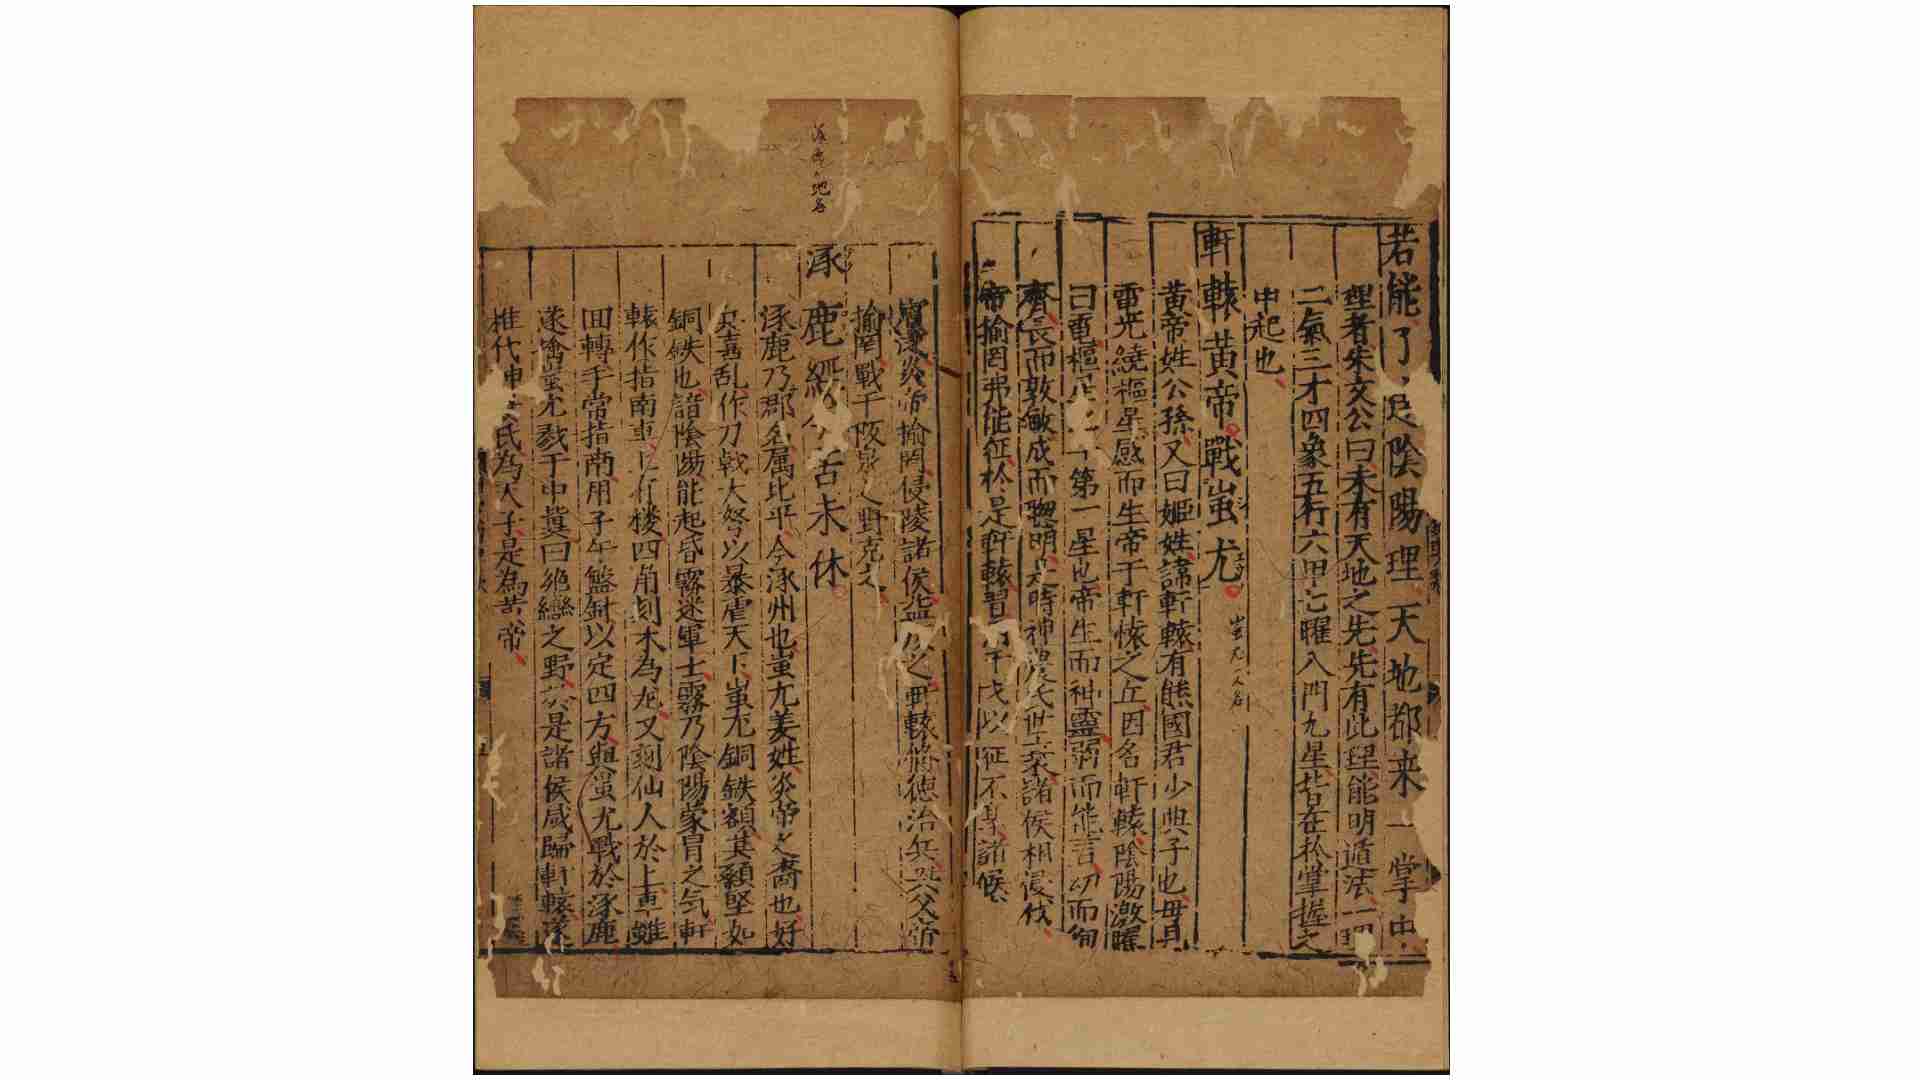 若能了達陰陽理天地都来一掌中
理者朱文公曰未有天地之先先有此理能明遁法一理
二氣三才四象五行六甲七曜八門九星皆在於掌握之
中起也
軒轅黃帝戰蚩尤
蚩尤人名
黃帝姓公孫又曰姬姓諱軒轅有熊國君少典子也母見
電光繞樞星感而生帝于軒轅之丘因名軒轅陰陽激耀
曰電樞北斗第一星也帝生而神靈弱而能言幼而徇
齊長而敦敏成而聰明是時神農氏世衰諸侯相侵伐
帝揄罔弗能征於是軒轅習用干戈以征不享諸侯
賓從炎帝揄罔侵陵諸侯益叛之軒轅修德治兵與炎帝
揄罔戰于阪泉之野克之
涿鹿地名
涿鹿經今苦未休
涿鹿乃郡名属北平今涿州也蚩尤姜姓炎帝之裔也好
兵喜乱作刀戟大弩以暴虐天下蚩尤銅鉄額其額堅如
銅鉄也諳陰陽能起昏霧迷軍士霧乃陰陽蒙冒之气軒
轅作指南車上有楼四角刻木為龙又刻仙人於上車雖
回轉手常指南用子午盤針以定四方與蚩尤戰於涿鹿
遂擒蚩尤戮于中冀曰絶轡之野於是諸侯咸歸軒轅遂
推代神農氏為天子是為黃帝